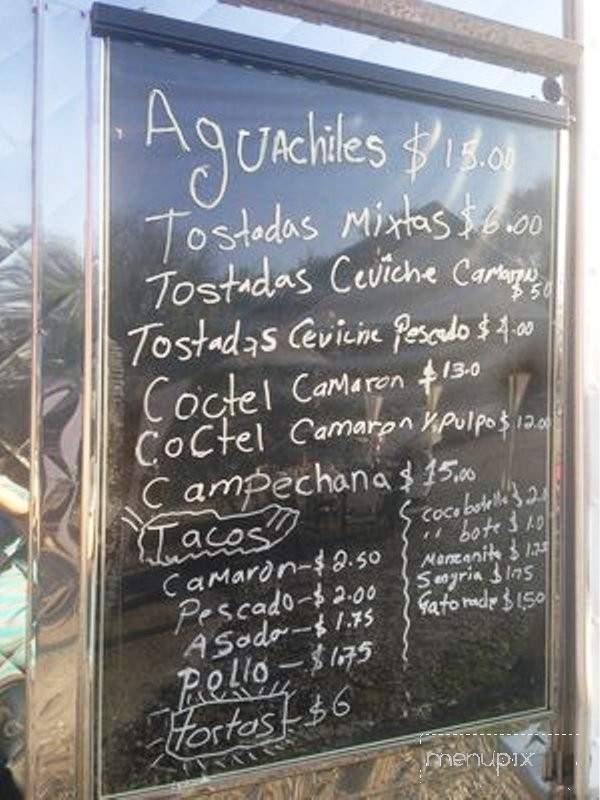 Aguachiles $15.00
Tostadas Mixtas $6.00
Tostadas Ceviche Camaron
$50
Tostadas Ceviche Pescado $4.00
Coctel Camaron $13.0
Coctel Camaron y Pulpo $12.00
Campechana $15.00
Tacos
Camaron-$2.50
Pescado-$2.00
Asado-$1.75
Pollo-$1.75
Tortas-$6
Coco botella $2.0
" bote $1.0
Manzanita $1.75
Sangria $1.75
Gatorade $1.50
menupix